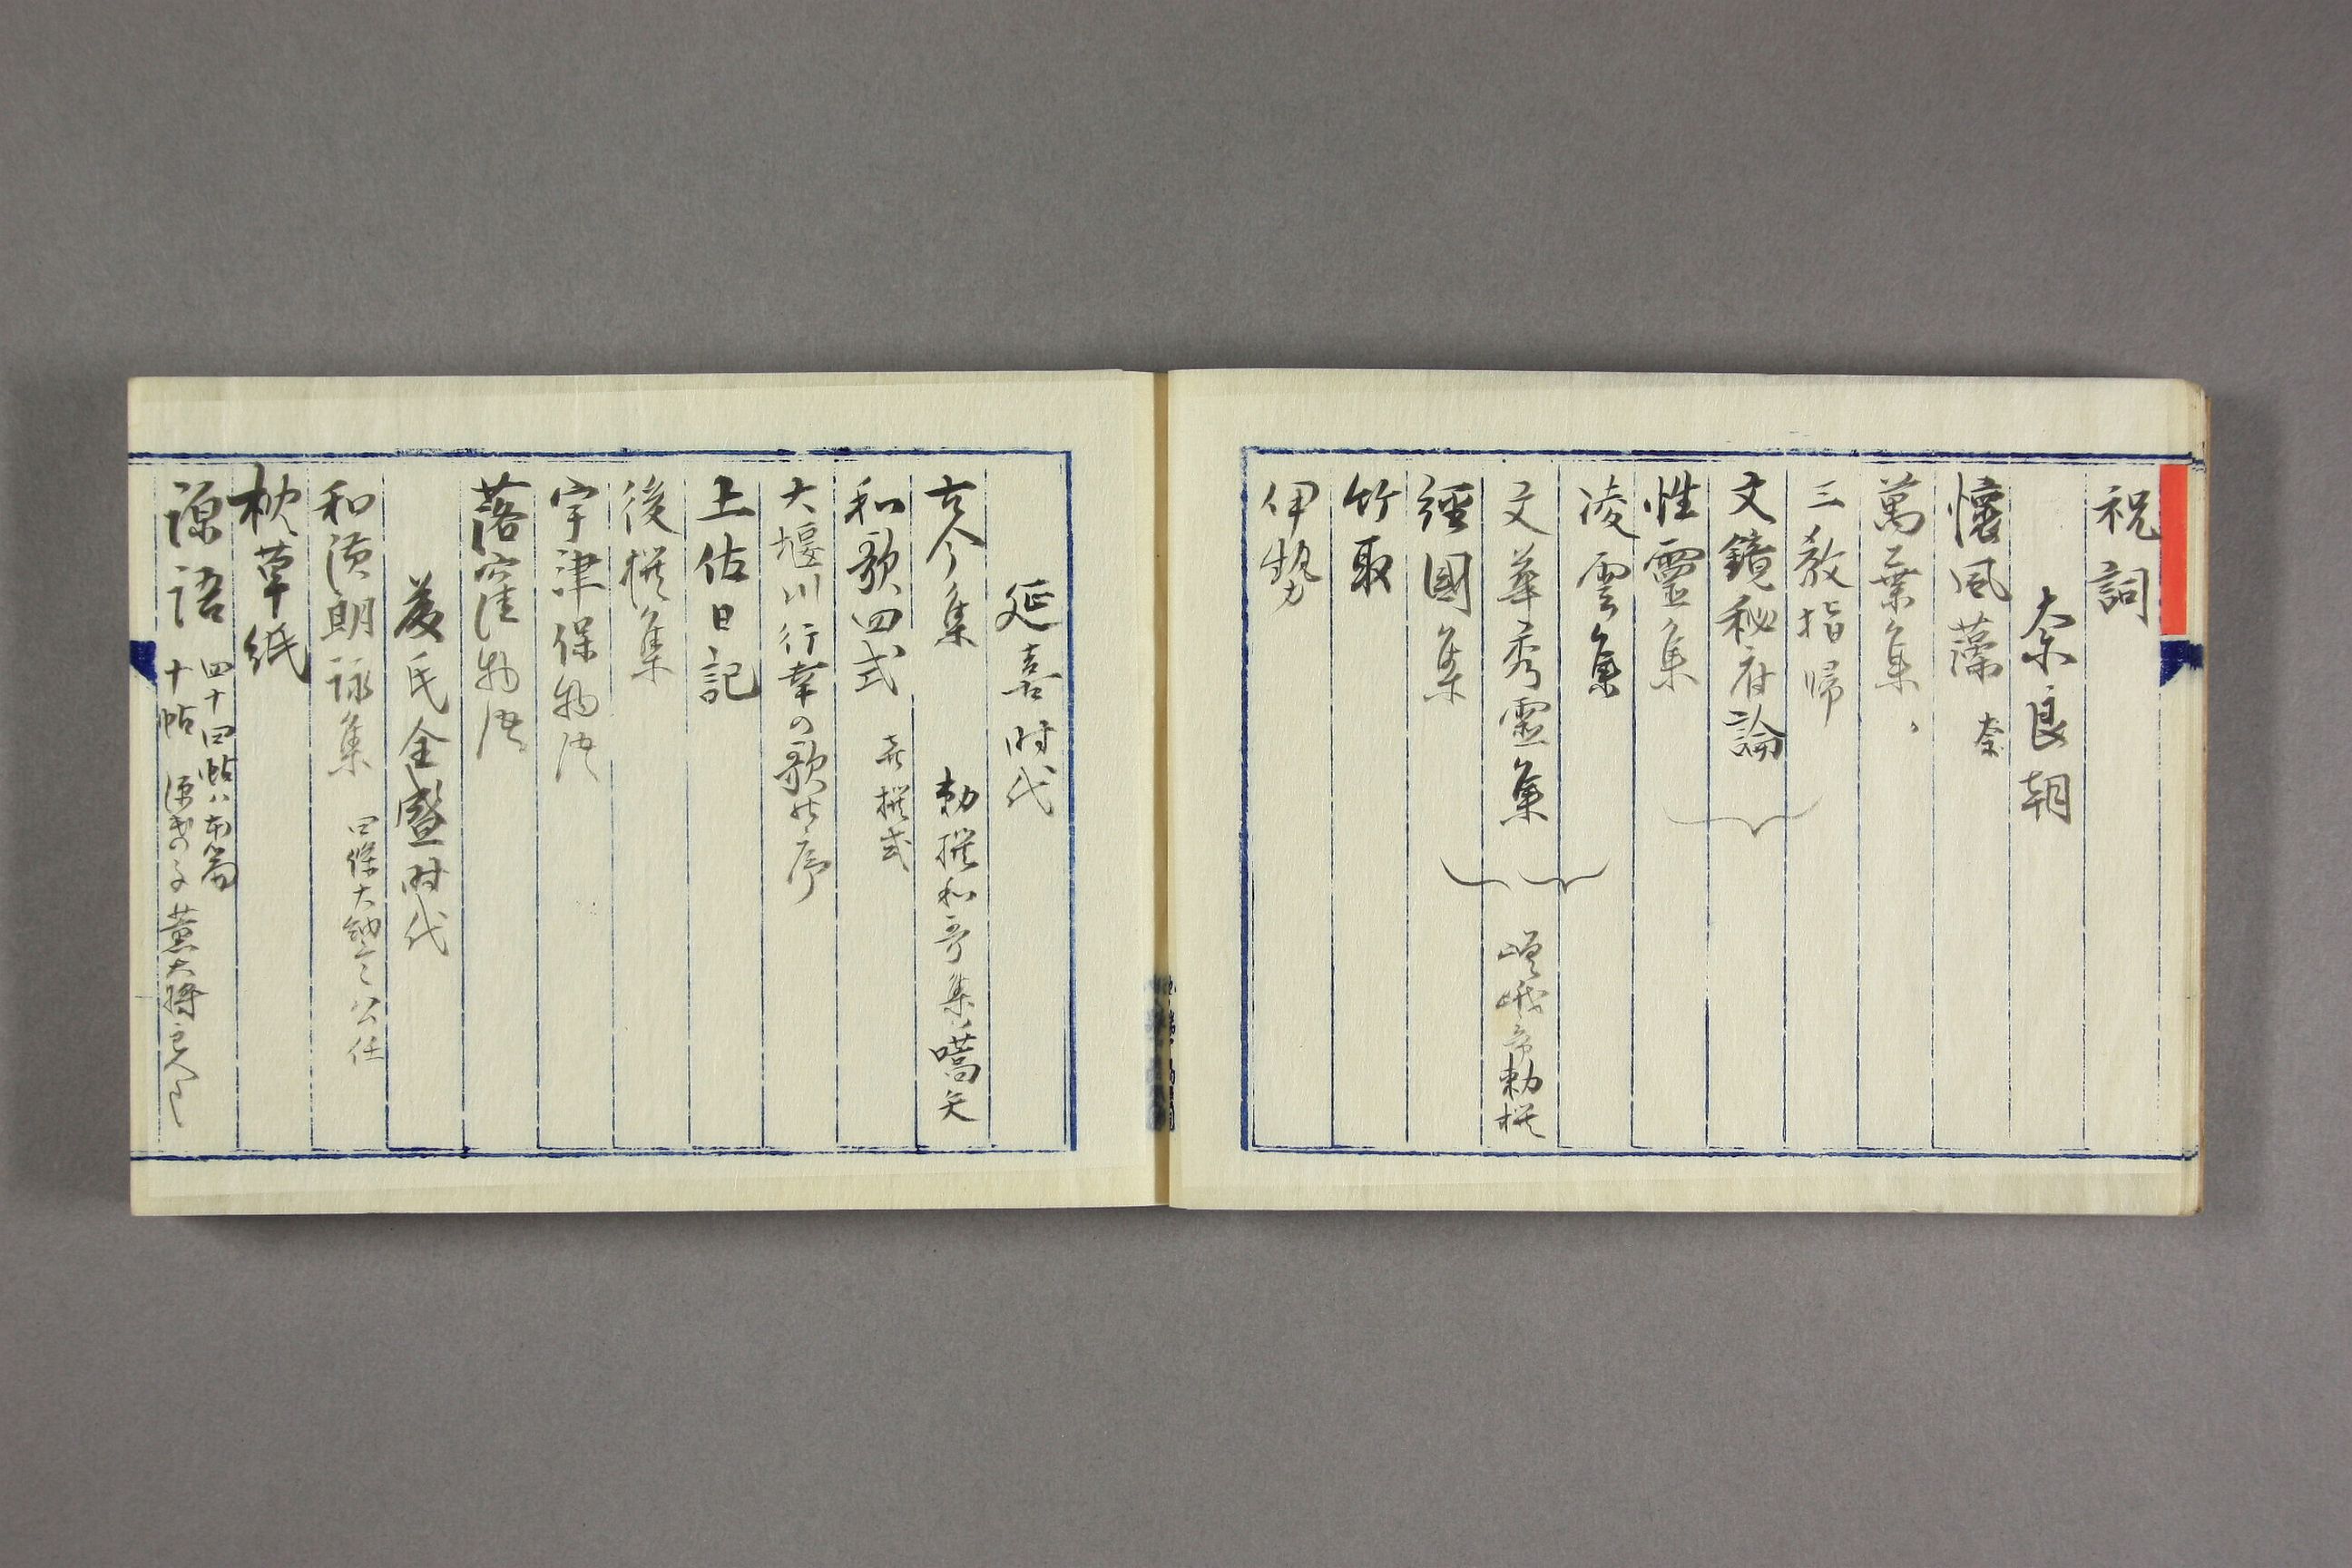 祝詞
奈良朝
懐風藻 奈
萬葉集 、
三教指帰
文鏡秘府論
性靈集
凌雲集
文華秀靈集
嵯峨帝勅撰
經國集
竹取
伊勢
延喜时代
古今集 勅撰和哥集ノ嚆矢
和歌四式 喜撰式
大堰川行幸の歌の序
土佐日記
後撰集
宇津保物语
落窪物语
藤氏全盛时代
和漢朗詠集 四條大納言公任
枕草紙
源語 四十四帖ハ本篇
十帖 源氏の子 薫大將